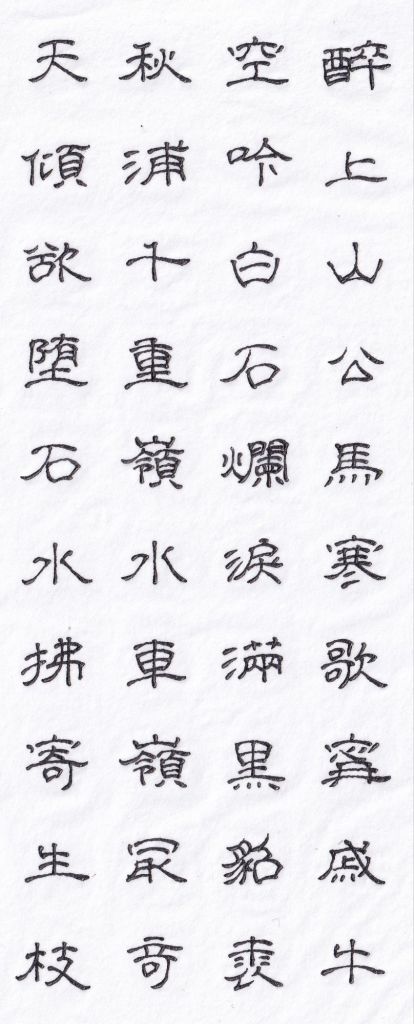 醉上山公馬寒歌寗戚牛
空吟白石爛淚滿黒貂裘
秋浦千重嶺水車嶺冣奇
天傾欲堕石水拂寄生枝